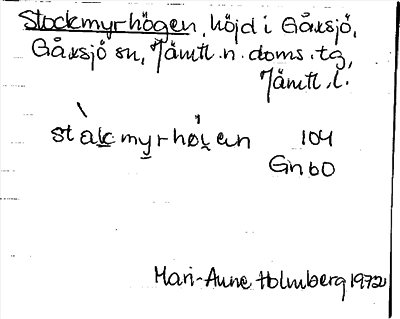 Stockmyrhögen, höjd i Gåxsjö,
Gåxsjö sn, Jämtl. n. doms. tg,
Jämtl. l.
stàkmyrhøłen 104
Gn60
Mari-Anne Holmberg 1972